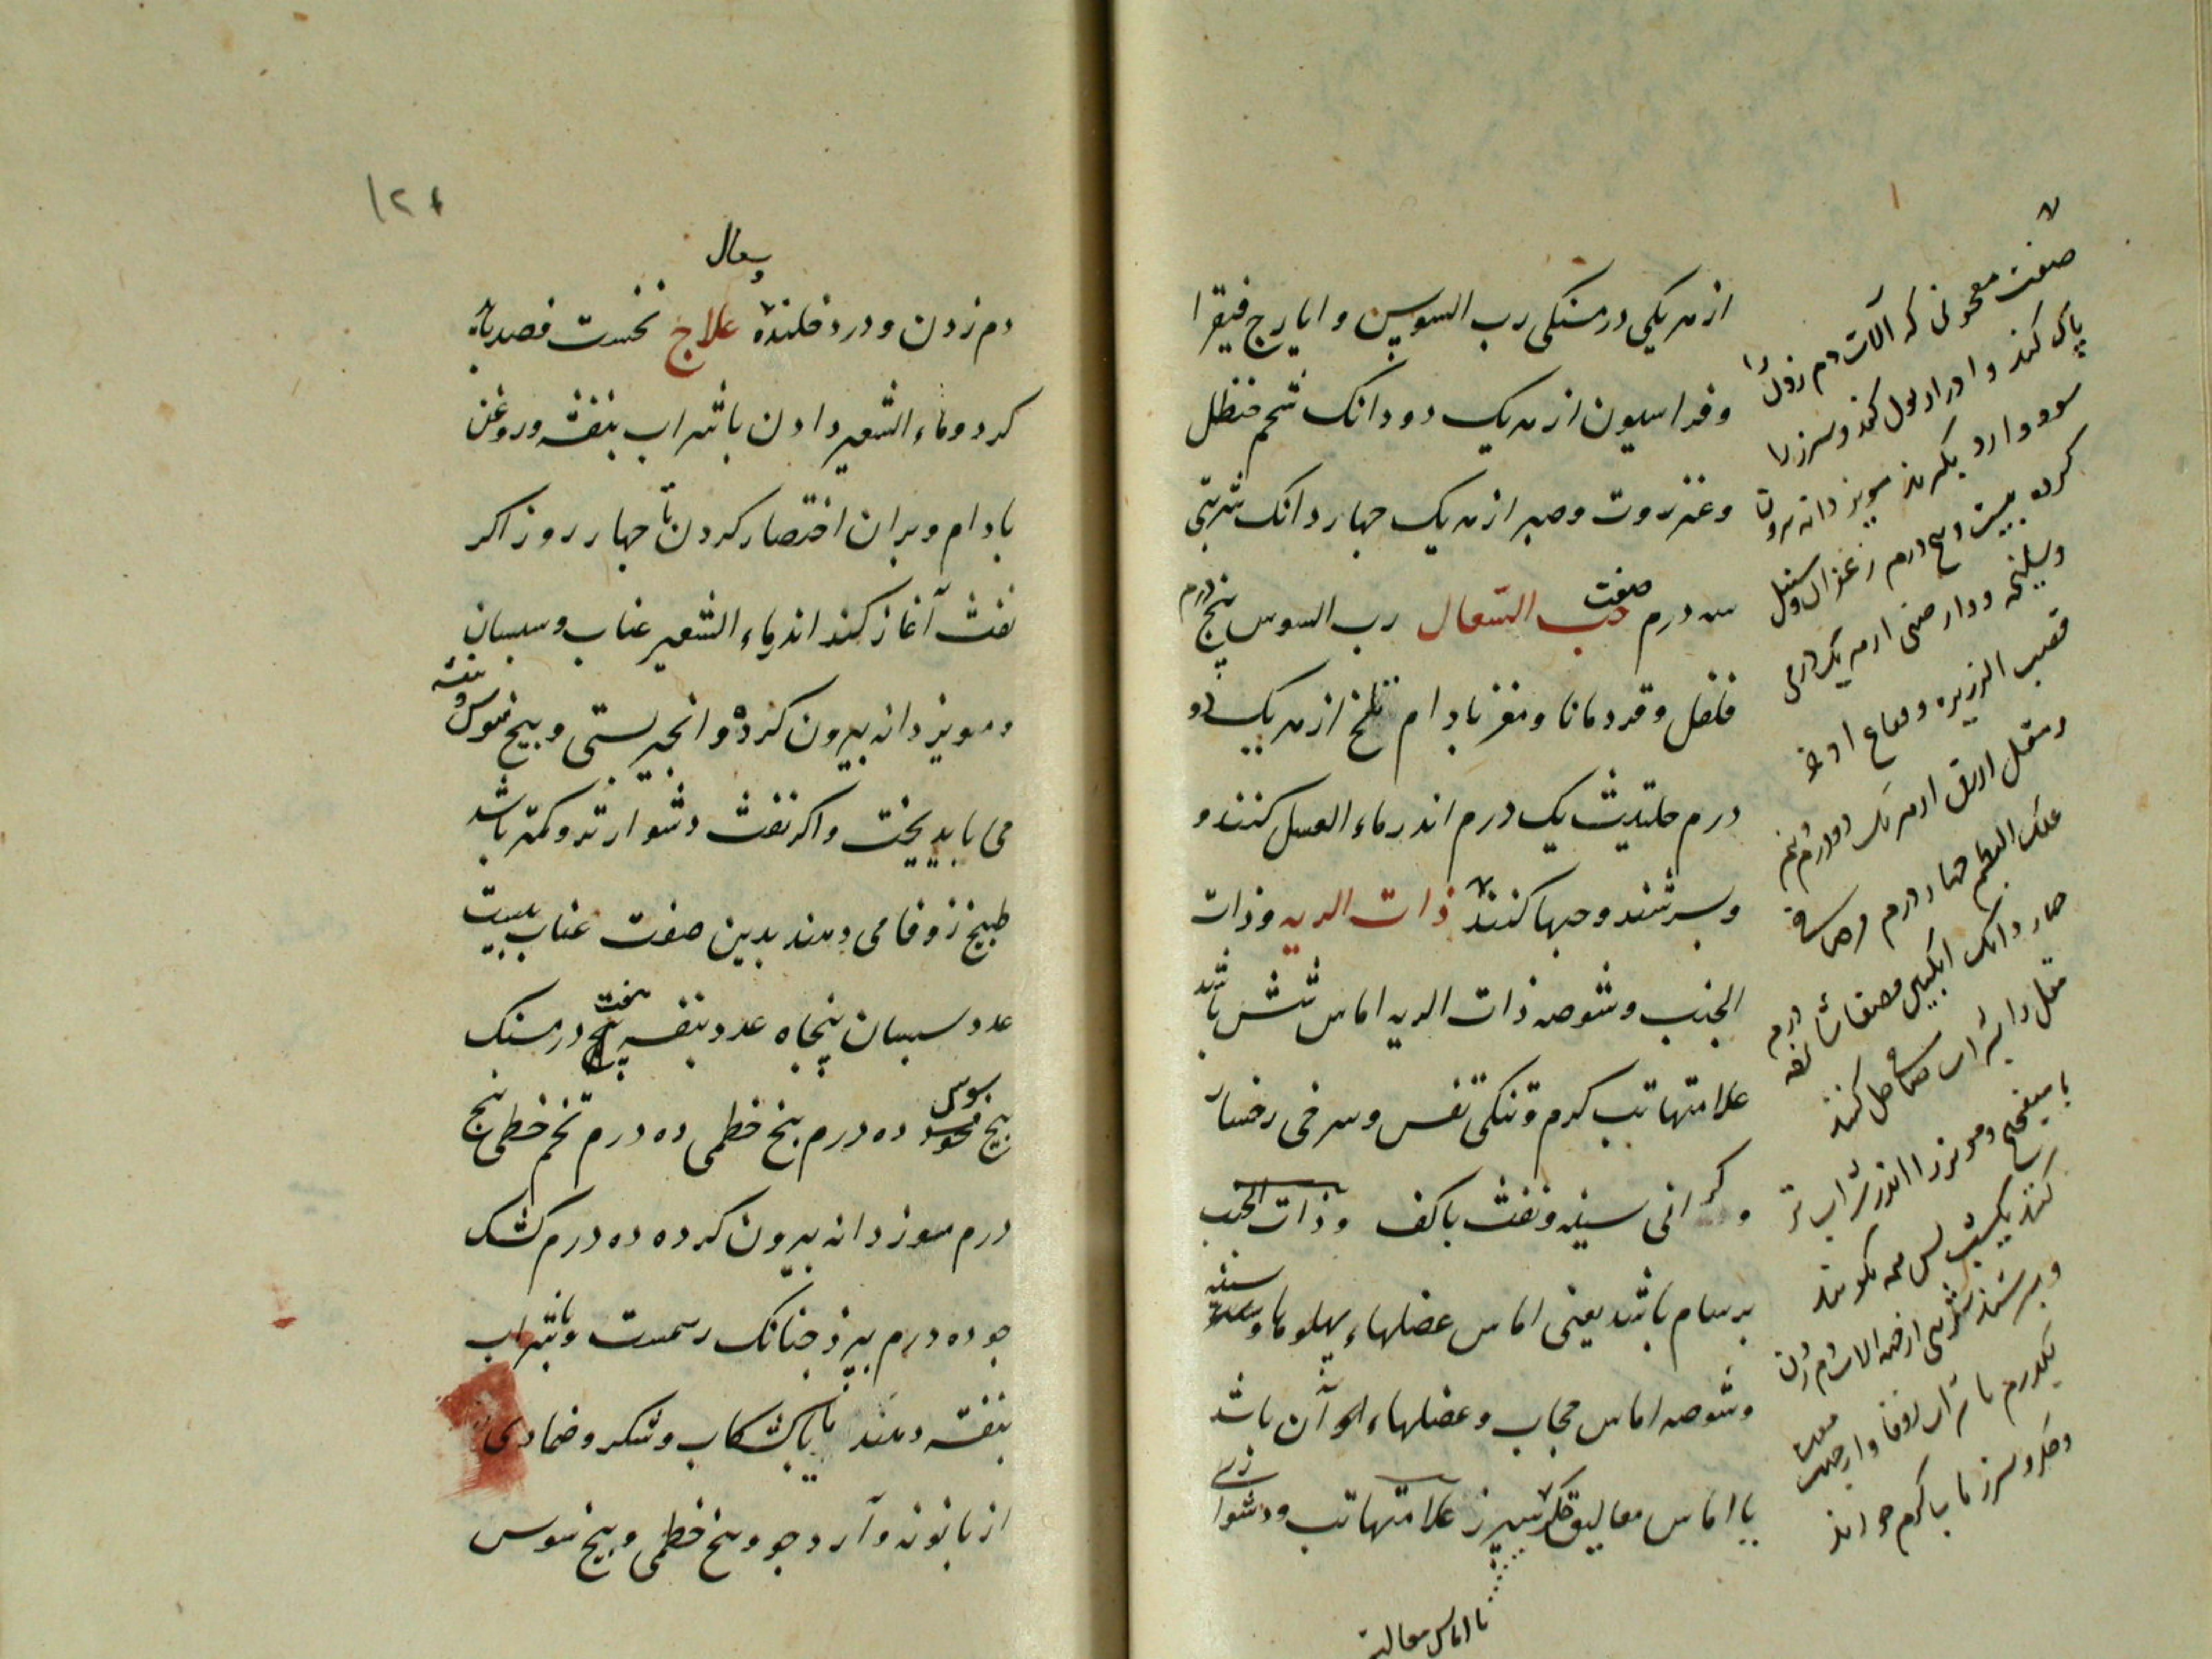 از هر یکی درمسنکی رب السوس و ایارج فیقرا
وفراسیون از هر یک دو دانک شحم حنظل
وعنزروت وصبر از هر یک چهار دانک شربتی
سه درم صفت حب السعال رب السوس پنج درم
فلفل وقردمانا ومغز بادام تلخ از هر یک دو
درم حلتیت یک درم اندر ماء العسل کنند و
وبسرشند وحبها کنند ذات الریه وذات
الجنب وشوصه ذات الریه اماس شش باشد
علامتها تب کرم وتنکی نفس وسرخی رخسار
وکرانی سینه ونفث باکف وذات الجنب
برسام باشد یعنی اماس عضلهاء پهلوها وسینه
وشوصه اماس حجاب وعضلهاء آن باشد
یا اماس معالیق جکر سپرز علامتها تب ودشوا زی
یا اماس معالیق
صفت معجونی که آلات دم زدن را
پاک کند وادرار بول کند وسپرز را
سود دارد بکیرند مویز دانه بیرون
کرده بیست وپنج درم زعفران وسنبل
وسلیخه ودارصینی از هر یک درمی
قصب الذریره وفقاح اذخر
ومقل ازرق از هر یک دو درم ونیم
علک البطم چهار درم
چهار دانک انکبین مصفا درم
مقل را بشراب حل کنند
با میفختج ومویز را اندر شراب تر
کنند یکشب پس همه بکوبند
وبسرشند شربتی الات دم زدن
یکدرم با شراب زوفا
وجکر وسپرز با آب کرم
۱۲۶
وسعال
دم زدن ودرد خلنده علاج نخست فصد باید
کرد وماء الشعیر دادن باشراب بنفشه وروغن
بادام وبران اختصار کردن تا چهار روز اکر
نفث آغاز کند اندر ماء الشعیر عناب وسبستان
ومویز دانه بیرون کرده وانجیر بستی وبیخ سوس وبنفشه
می باید پخت واکر نفث دشوارتر وکمتر باشد
طبیخ زوفا می دهند بدین صفت عناب بیست
عدد سبستان پنجاه عدد بنفشه هفت درمسنک
بیخ سوس ده درم بیخ خطمی ده درم تخم خطمی پنج
درم مویز دانه بیرون کرده ده درم کشک
جو ده درم بپزند چنانک رسمست وباشراب
بنفشه دهند یا باکشکاب وشکر وضمادی
از بابونه وآرد جو وبیخ خطمی وبیخ سوس